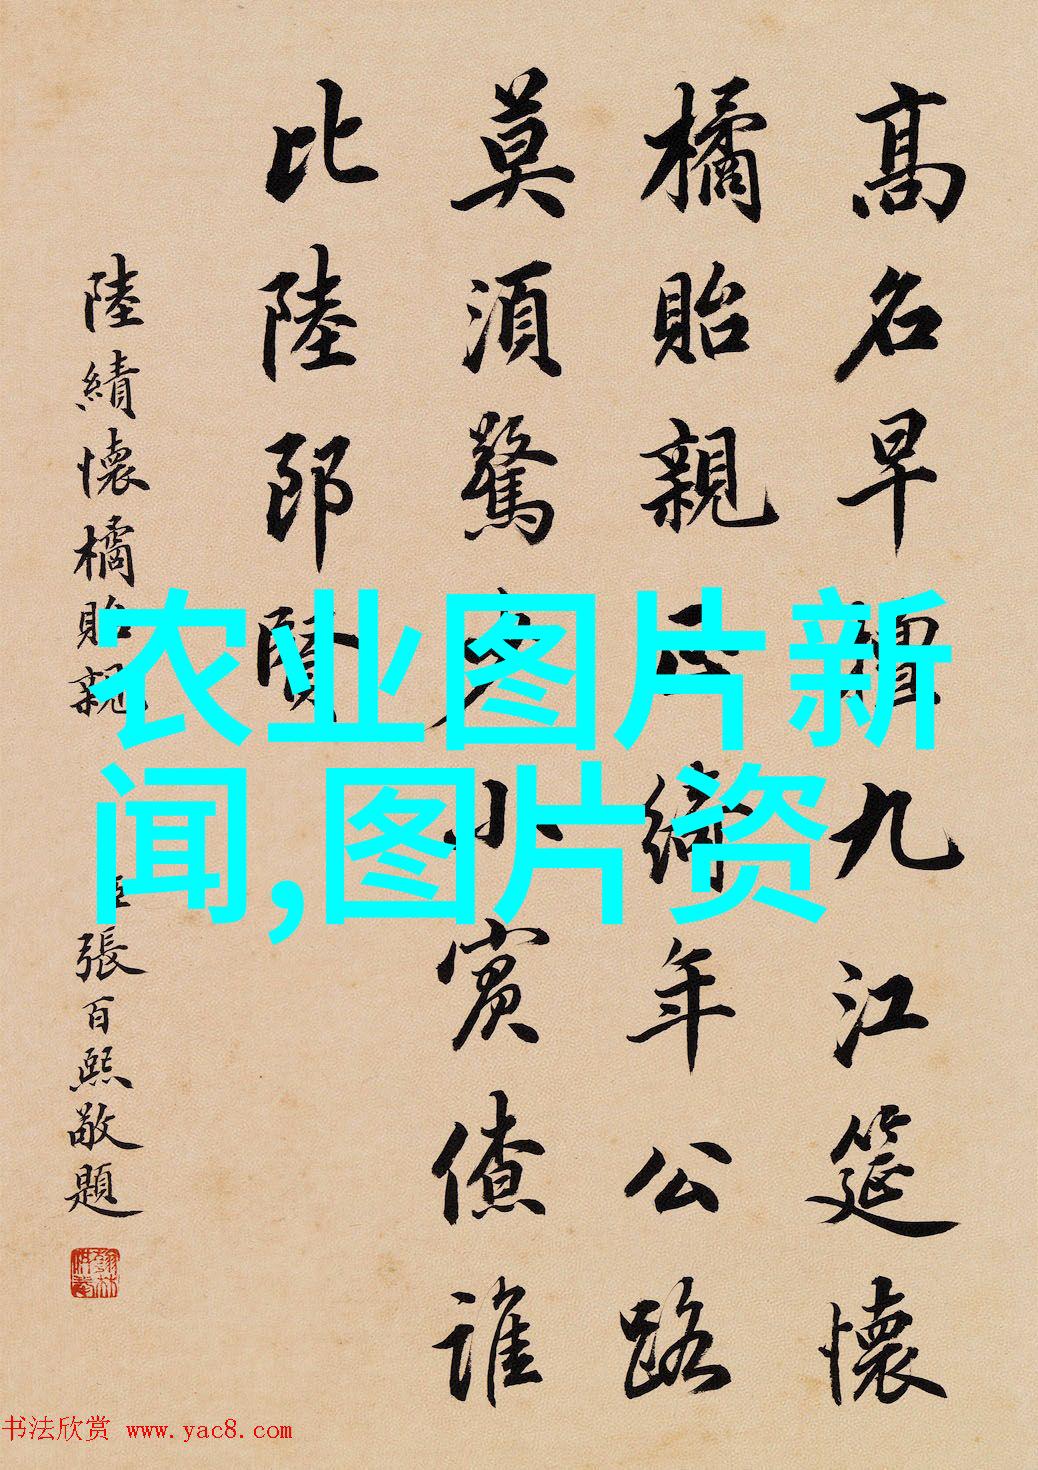 高名早九江筵懷
橘貽親綺年公路
莫須驚小賓僚誰
比陸郎賢
陸績懷橘貽親
臣張百熙敬題
农业图片新
闻,图片资
书法欣赏 www.yac8.com